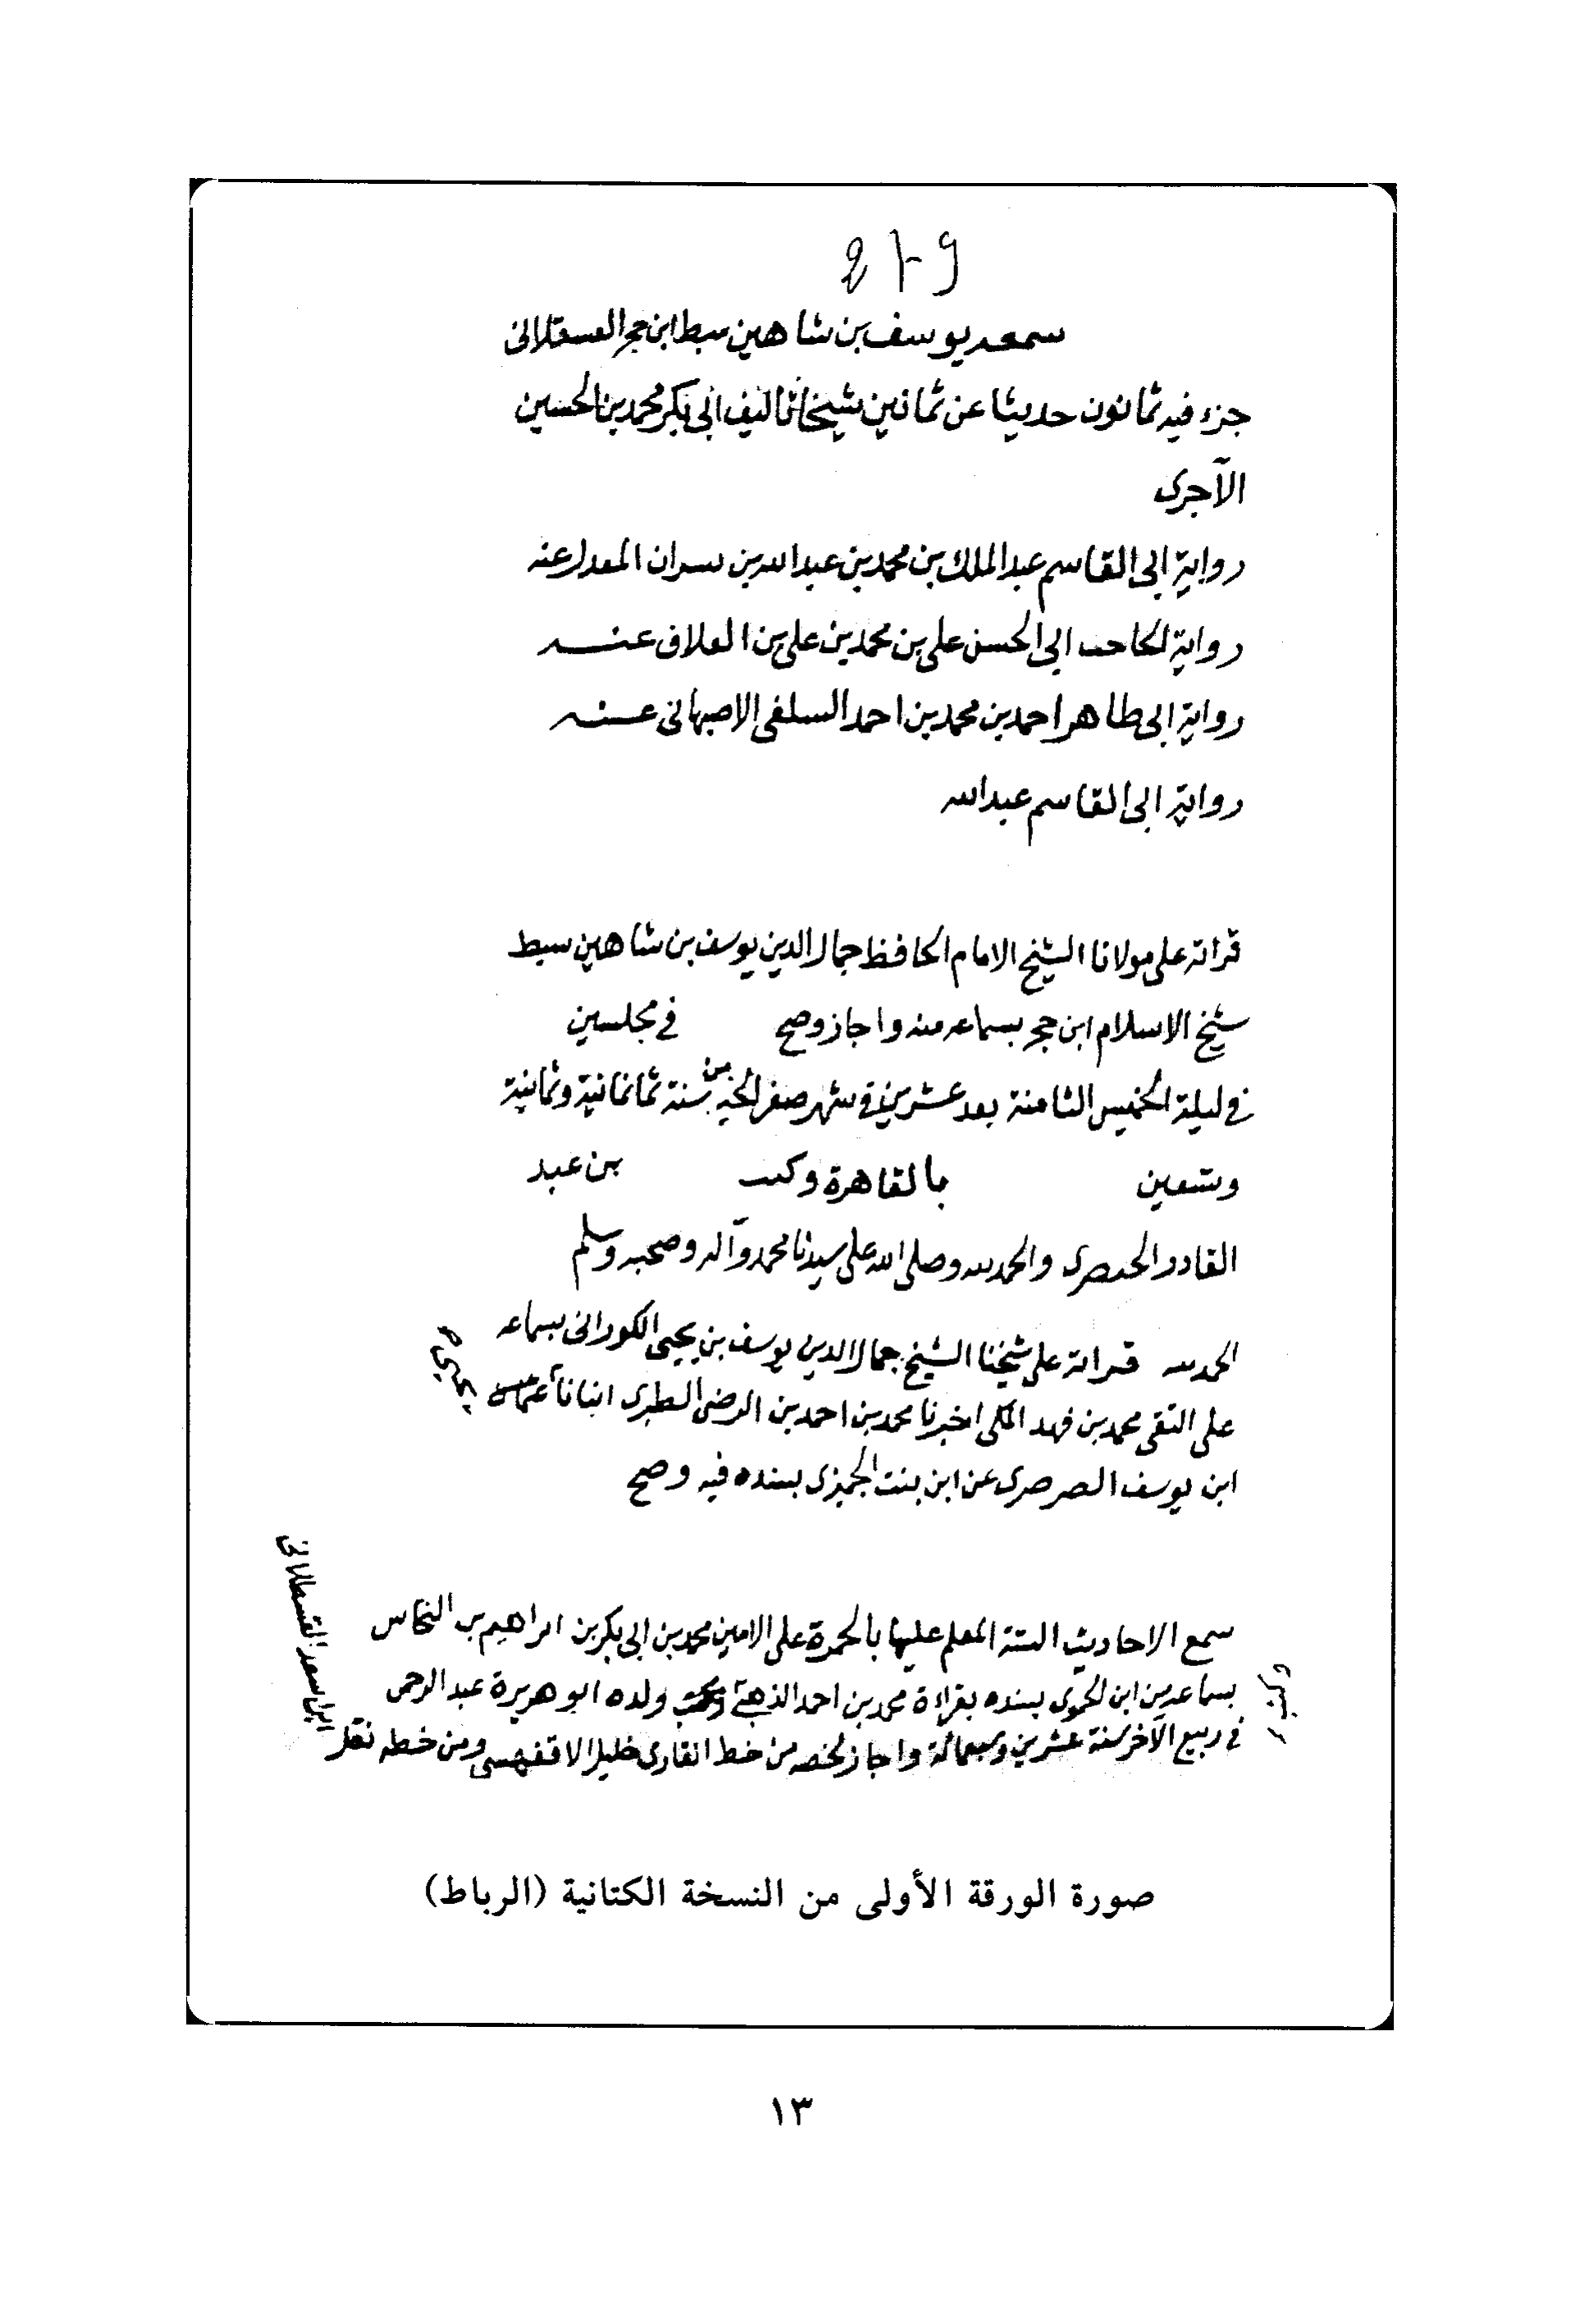 سمعه يوسف بن شاهين سبط ابن حجر العسقلاني
جزء فيه ثمانون حديثا عن ثمانين شيخا تأليف ابي بكر محمد بن الحسين
الآجرى
رواية ابى القاسم عبد الملك بن محمد بن عبد الله بن بسران المعدل عنه
رواية الحاجب ابى الحسن على بن محمد بن على بن العلاف عنه
رواية ابى طاهر احمد بن محمد بن احمد السلفى الاصبهانى عنه
رواية ابى القاسم عبد الله
قراته على مولانا الشيخ الامام الحافظ جمال الدين يوسف بن شاهين سبط
شيخ الاسلام ابن حجر بسماعه منه واجاز وصح في مجلسين
في ليلة الخميس الثامنة بعد عشرين في شهر صفر الخير من سنة ثمانمائية وثمانية
وتسعين بالقاهرة وكتب بن عبد
القادر والحمد لله وصلى الله على سيدنا محمد وآله وصحبه وسلم
الحمد لله قراته على شيخنا الشيخ جمال الدين يوسف بن يحيى الكورانى بسماعه
على التقى محمد بن فهد المكى اخبرنا محمد بن احمد بن الرضى الطبرى انبانا
ابن يوسف الصرصرى عن ابن بنت الجميزى بسنده فيه وصح
سمع الاحاديث الستة المعلم عليها بالحمرة على الامين محمد بن ابى بكر بن ابراهيم بن النحاس
بسماعه من ابن الحموى بسنده بقراءة محمد بن احمد الذهبى ولده ابو هريرة عبد الرحمن
في ربيع الآخر سنة عشرين وسبعمائة واجاز لخصه من خط القارى خليل الاقفهسى ومن خطه نقل
صورة الورقة الأولى من النسخة الكتانية (الرباط)
١٣